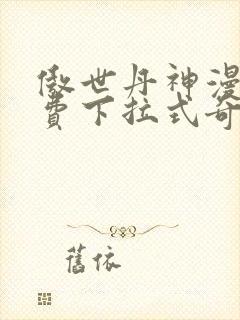 傲世丹神漫
費下拉式奇
舊依